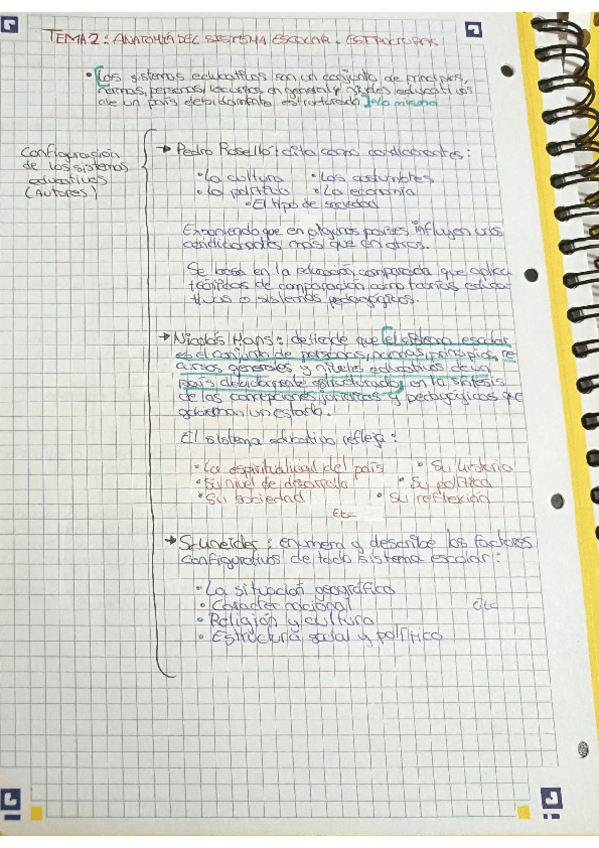 TEMA 2: ANATOMÍA DEL SISTEMA ESCOLAR. ESTRUCTURAS
• [Los sistemas educativos son un conjunto de principios,
normas, personas, recursos en general y niveles educativos
de un país debidamente estructurado] → lo mismo
Configuración
de los sistemas
educativos
(Autores)
→ Pedro Roselló: cita como condicionantes:
• La cultura • Las costumbres
• La política • La economía
• El tipo de sociedad
Exponiendo que en algunos países influyen unos
condicionantes más que en otros.
Se basa en la educación comparada que aplica
técnicas de comparación como teorías educa-
tivas o sistemas pedagógicos.
→ Nicolás Hans: defiende que [el sistema escolar
es el conjunto de personas, normas, principios, re-
cursos generales y niveles educativos de un
país debidamente estructurado] en la síntesis
de las concepciones jurídicas y pedagógicas que
gobiernan un estado.
El sistema educativo refleja:
• La espiritualidad del país • Su historia
• Su nivel de desarrollo • Su política
• Su sociedad • Su reflexión
Etc
→ Scuneider: enumera y describe los factores
configurativos de todo sistema escolar:
• La situación geográfica
• Carácter nacional etc
• Religión y cultura
• Estructura social y político